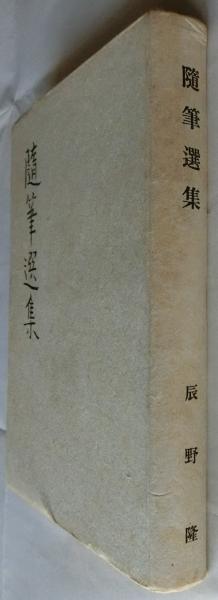 隨筆選集
隨筆選集
辰野隆